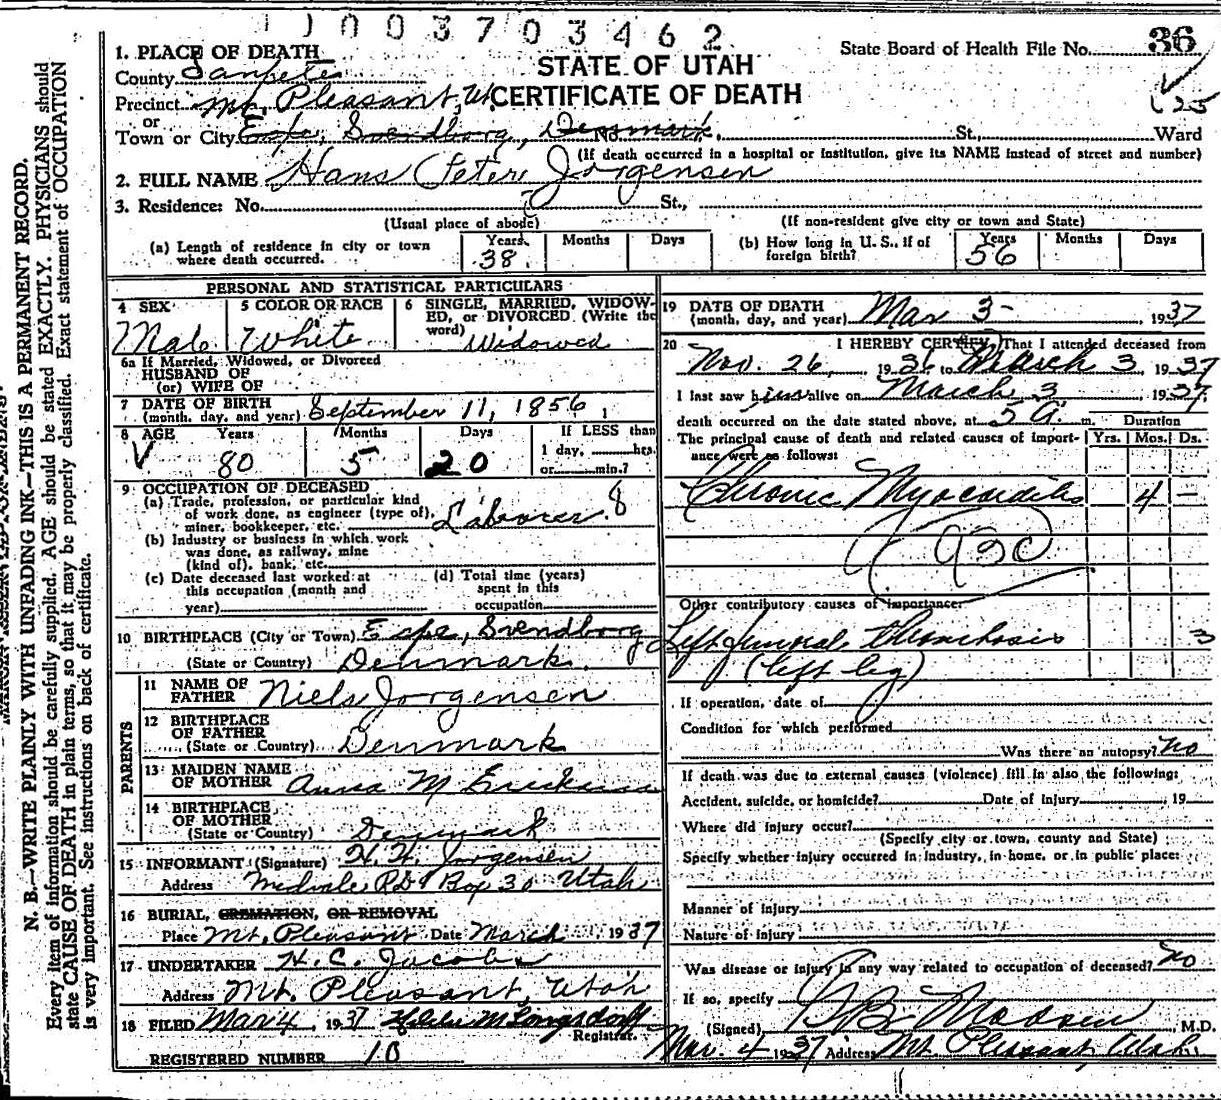 1003703462
1. PLACE OF DEATH
STATE OF UTAH
CERTIFICATE OF DEATH
State Board of Health File No. 36
County Sanpete
Precinct Mt. Pleasant, Ut
or
Town or City Espe, Svendborg, Denmark No. St., Ward
(If death occurred in a hospital or institution, give its NAME instead of street and number)
2. FULL NAME Hans Peter Jorgensen
3. Residence: No. St.,
(Usual place of abode) (If non-resident give city or town and State)
(a) Length of residence in city or town where death occurred. Years 38. Months Days
(b) How long in U. S., if of foreign birth? Years 56 Months Days
PERSONAL AND STATISTICAL PARTICULARS
4 SEX Male
5 COLOR OR RACE White
6 SINGLE, MARRIED, WIDOWED, or DIVORCED (Write the word) Widowed
6a If Married, Widowed, or Divorced
HUSBAND OF
(or) WIFE OF
7 DATE OF BIRTH
(month, day, and year) September 11, 1856
8 AGE Years 80 Months 5 Days 20 If LESS than 1 day, hrs. or min.?
9 OCCUPATION OF DECEASED
(a) Trade, profession, or particular kind
of work done, as engineer (type of),
miner, bookkeeper, etc. Laborer 8
(b) Industry or business in which work
was done, as railway, mine
(kind of), bank, etc.
(c) Date deceased last worked at
this occupation (month and
year)
(d) Total time (years)
spent in this
occupation
10 BIRTHPLACE (City or Town) Espe, Svendborg
(State or Country) Denmark.
PARENTS
11 NAME OF
FATHER Niels Jorgensen
12 BIRTHPLACE
OF FATHER
(State or Country) Denmark
13 MAIDEN NAME
OF MOTHER Anna M
14 BIRTHPLACE
OF MOTHER
(State or Country) Denmark
15 INFORMANT (Signature) H. H. Jorgensen
Address Midvale Box 30 Utah
16 BURIAL, CREMATION, OR REMOVAL
Place Mt. Pleasant Date March 1937
17 UNDERTAKER H. C. Jacobs
Address Mt. Pleasant, Utah
18 FILED Mar 4, 1937 M Longsdorff
Registrar.
REGISTERED NUMBER 10
19 DATE OF DEATH
(month, day, and year) Mar 3 - 1937
20 I HEREBY CERTIFY, That I attended deceased from
Nov. 26, 1936 to March 3, 1937
I last saw him alive on March 3, 1937
death occurred on the date stated above, at 5 A. m.
The principal cause of death and related causes of importance were as follows:
Duration Yrs. Mos. Ds.
Chronic Myocarditis 4 -
93c
Other contributory causes of importance:
Left femoral thrombosis 3
(left leg)
If operation, date of
Condition for which performed
Was there an autopsy? No
If death was due to external causes (violence) fill in also the following:
Accident, suicide, or homicide? Date of injury , 19
Where did injury occur?
(Specify city or town, county and State)
Specify whether injury occurred in industry, in home, or in public place:
Manner of injury
Nature of injury
Was disease or injury in any way related to occupation of deceased? No
If so, specify
(Signed) Madsen, M.D.
Mar. 4 1937 Address Mt. Pleasant, Utah.
N. B.—WRITE PLAINLY WITH UNFADING INK—THIS IS A PERMANENT RECORD.
Every item of information should be carefully supplied. AGE should be stated EXACTLY. PHYSICIANS should
state CAUSE OF DEATH in plain terms, so that it may be properly classified. Exact statement of OCCUPATION
is very important. See instructions on back of certificate.